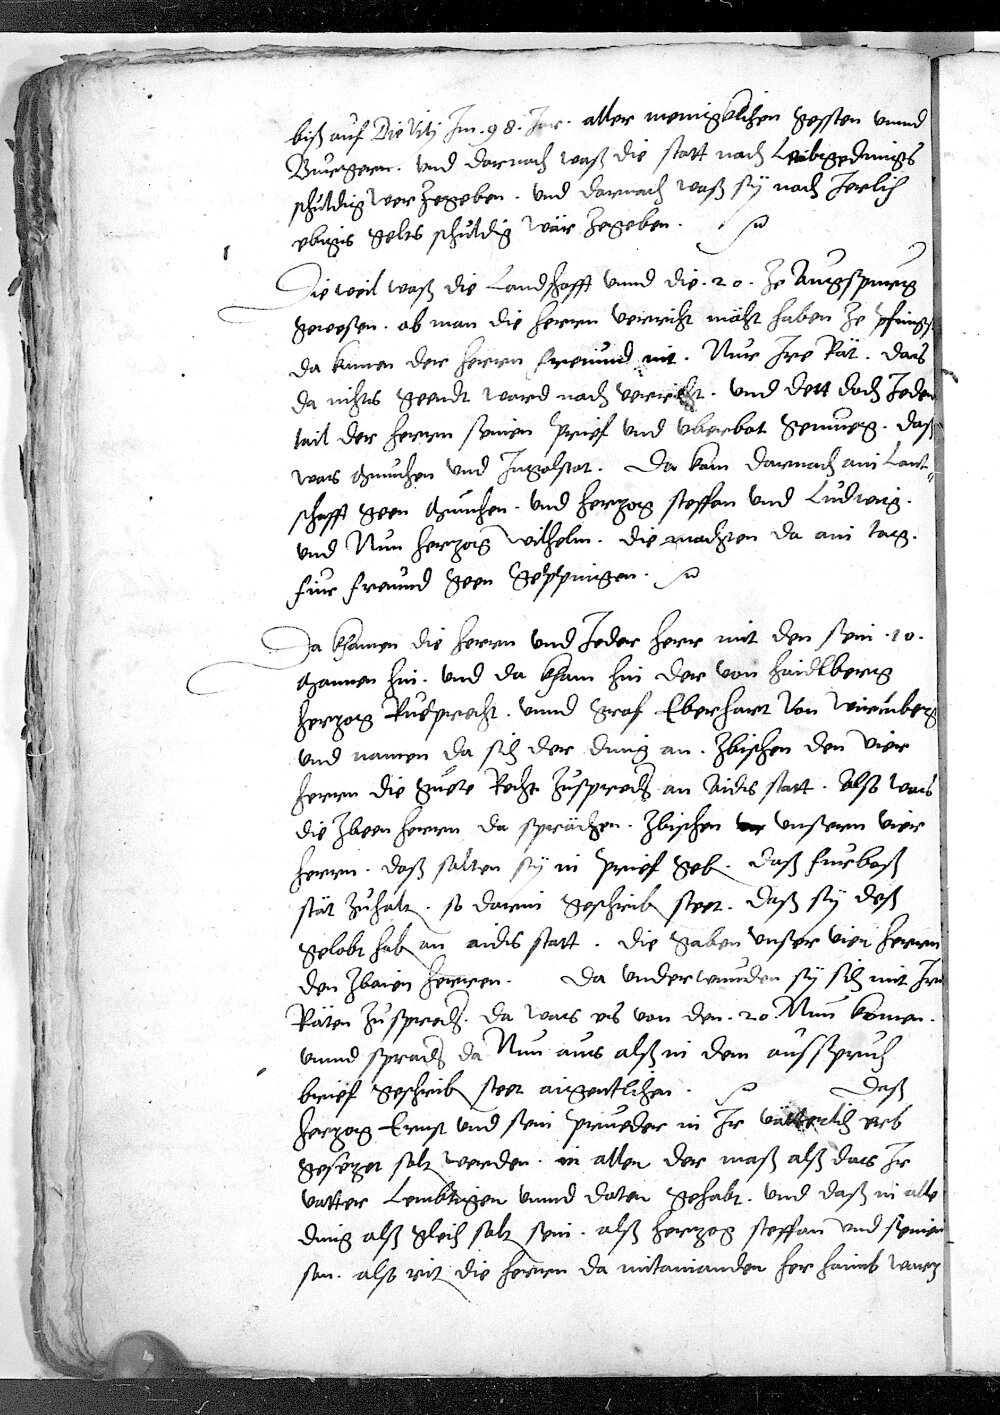 biß auf Die Viti Jm .98. Jar. aller menigklichen Gesten vnnd
Burgern. vnd darnach waß die statt nach Leibgedings
schuldig wer Zegeben. vnd darnach waß sÿ nach Jerlich
ebigs gelts schuldig wär Zegeben.
Die weil waß die Landschafft vnnd die .20. Ze Augspurg
gewesen. ob man die herrn verricht möcht haben Ze pfingsten
da kumen der herrn freund nit. Nur Ire Rät. das
da nichts geendt ward nach verricht. vnd dett doch Jeder
tail der herrn seinen prief vnd vberbot genueg. daß
was München vnd Ingolstat. Da kam darnach ain Lant-
schafft geen München. vnd herzog steffan vnd Ludwig.
vnd Nun herzog Wilhelm. die machten da ain tag.
für freund geen Geppingen.
Da khamen die herrn vnd Jeder herr mit den sein .10.
Mannen hin. vnd da kham hin der von haidlberg
herzog Ruprecht. vnnd Graf Eberhart Von Wirtenberg
vnd namen da sich der ding an. Zbischen den vier
herrn die Guete Recht Zusprech an Aids statt. Also was
die Zbeen herrn da sprächen. Zbischen vnsern vier
herrn. daß solten sÿ in prief geb. daß fürbaß
stät Zuhalt. so darin geschrib steet. daß sÿ deß
gelobt hab an aids statt. die gaben vnser vier herrn
den Zbaien herren. Da vnderwunden sÿ sich mit Irn
Räten Zusprech. da was es von den .20. Nun komen.
vnnd sprach da Nun aus alß in dem ausspruch
brief geschrib steet aigentlichen. Daß
herzog Ernst vnd sein prueder in Ir vätterlich erb
gesezt solt werden. in allen der maß alß das Ir
vatter Lembtigen vnnd doten gehabt. vnd daß in alle
ding alß gleich solt sein. alß herzog steffan vnd seinen
son. also rit die herrn da mitainanden her haimb warz